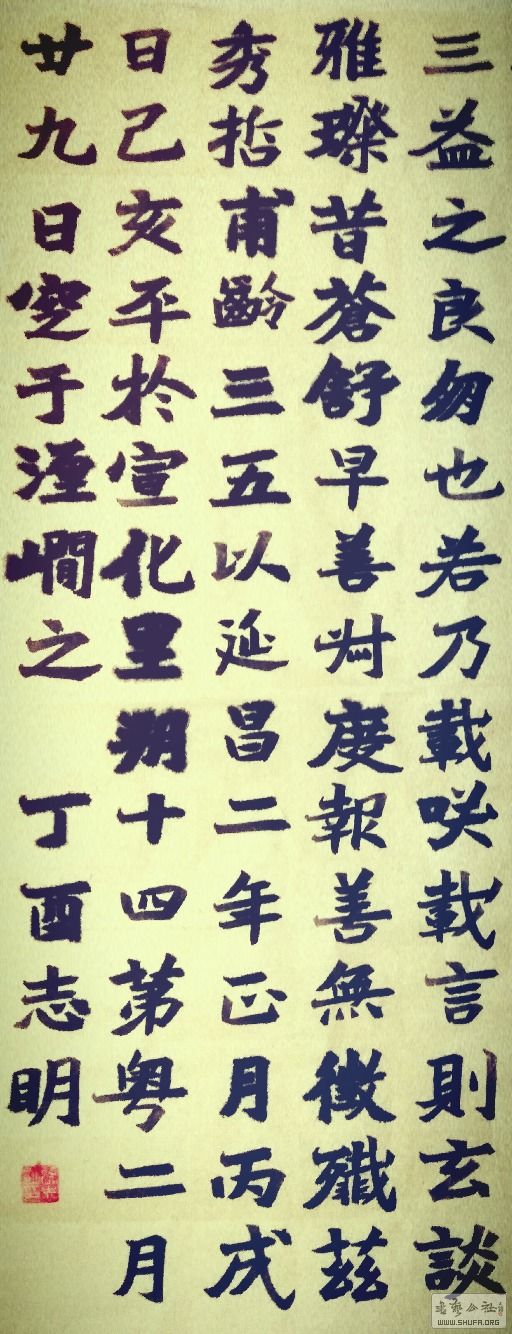 三益之良勿也若乃載咲載言則玄談
雅璨昔蒼舒早善叔度報善無徵殲茲
秀哲甫齡三五以延昌二年正月丙戌
日己亥平於宣化里朔十四苐粤二月
廿九日窆于湹澗之 丁酉志明
書藝公社
WWW.SHUFA.ORG